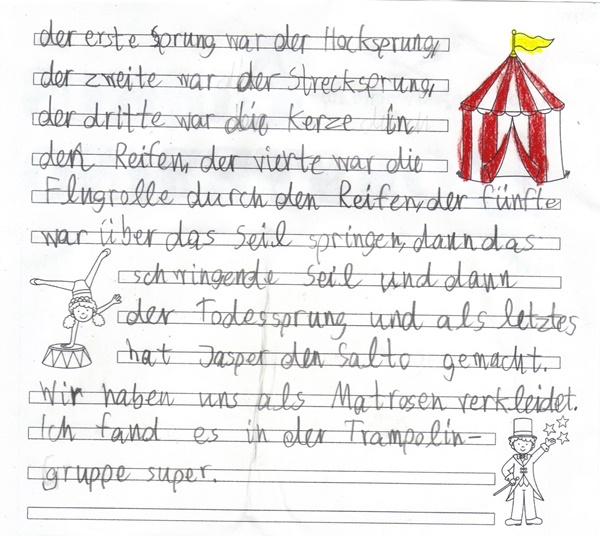 der erste Sprung war der Hocksprung,
der zweite war der Strecksprung,
der dritte war die Kerze in
den Reifen, der vierte war die
Flugrolle durch den Reifen, der fünfte
war über das Seil springen, dann das
schwingende Seil und dann
der Todessprung und als letztes
hat Jasper den Salto gemacht.
Wir haben uns als Matrosen verkleidet.
Ich fand es in der Trampolin-
gruppe super.